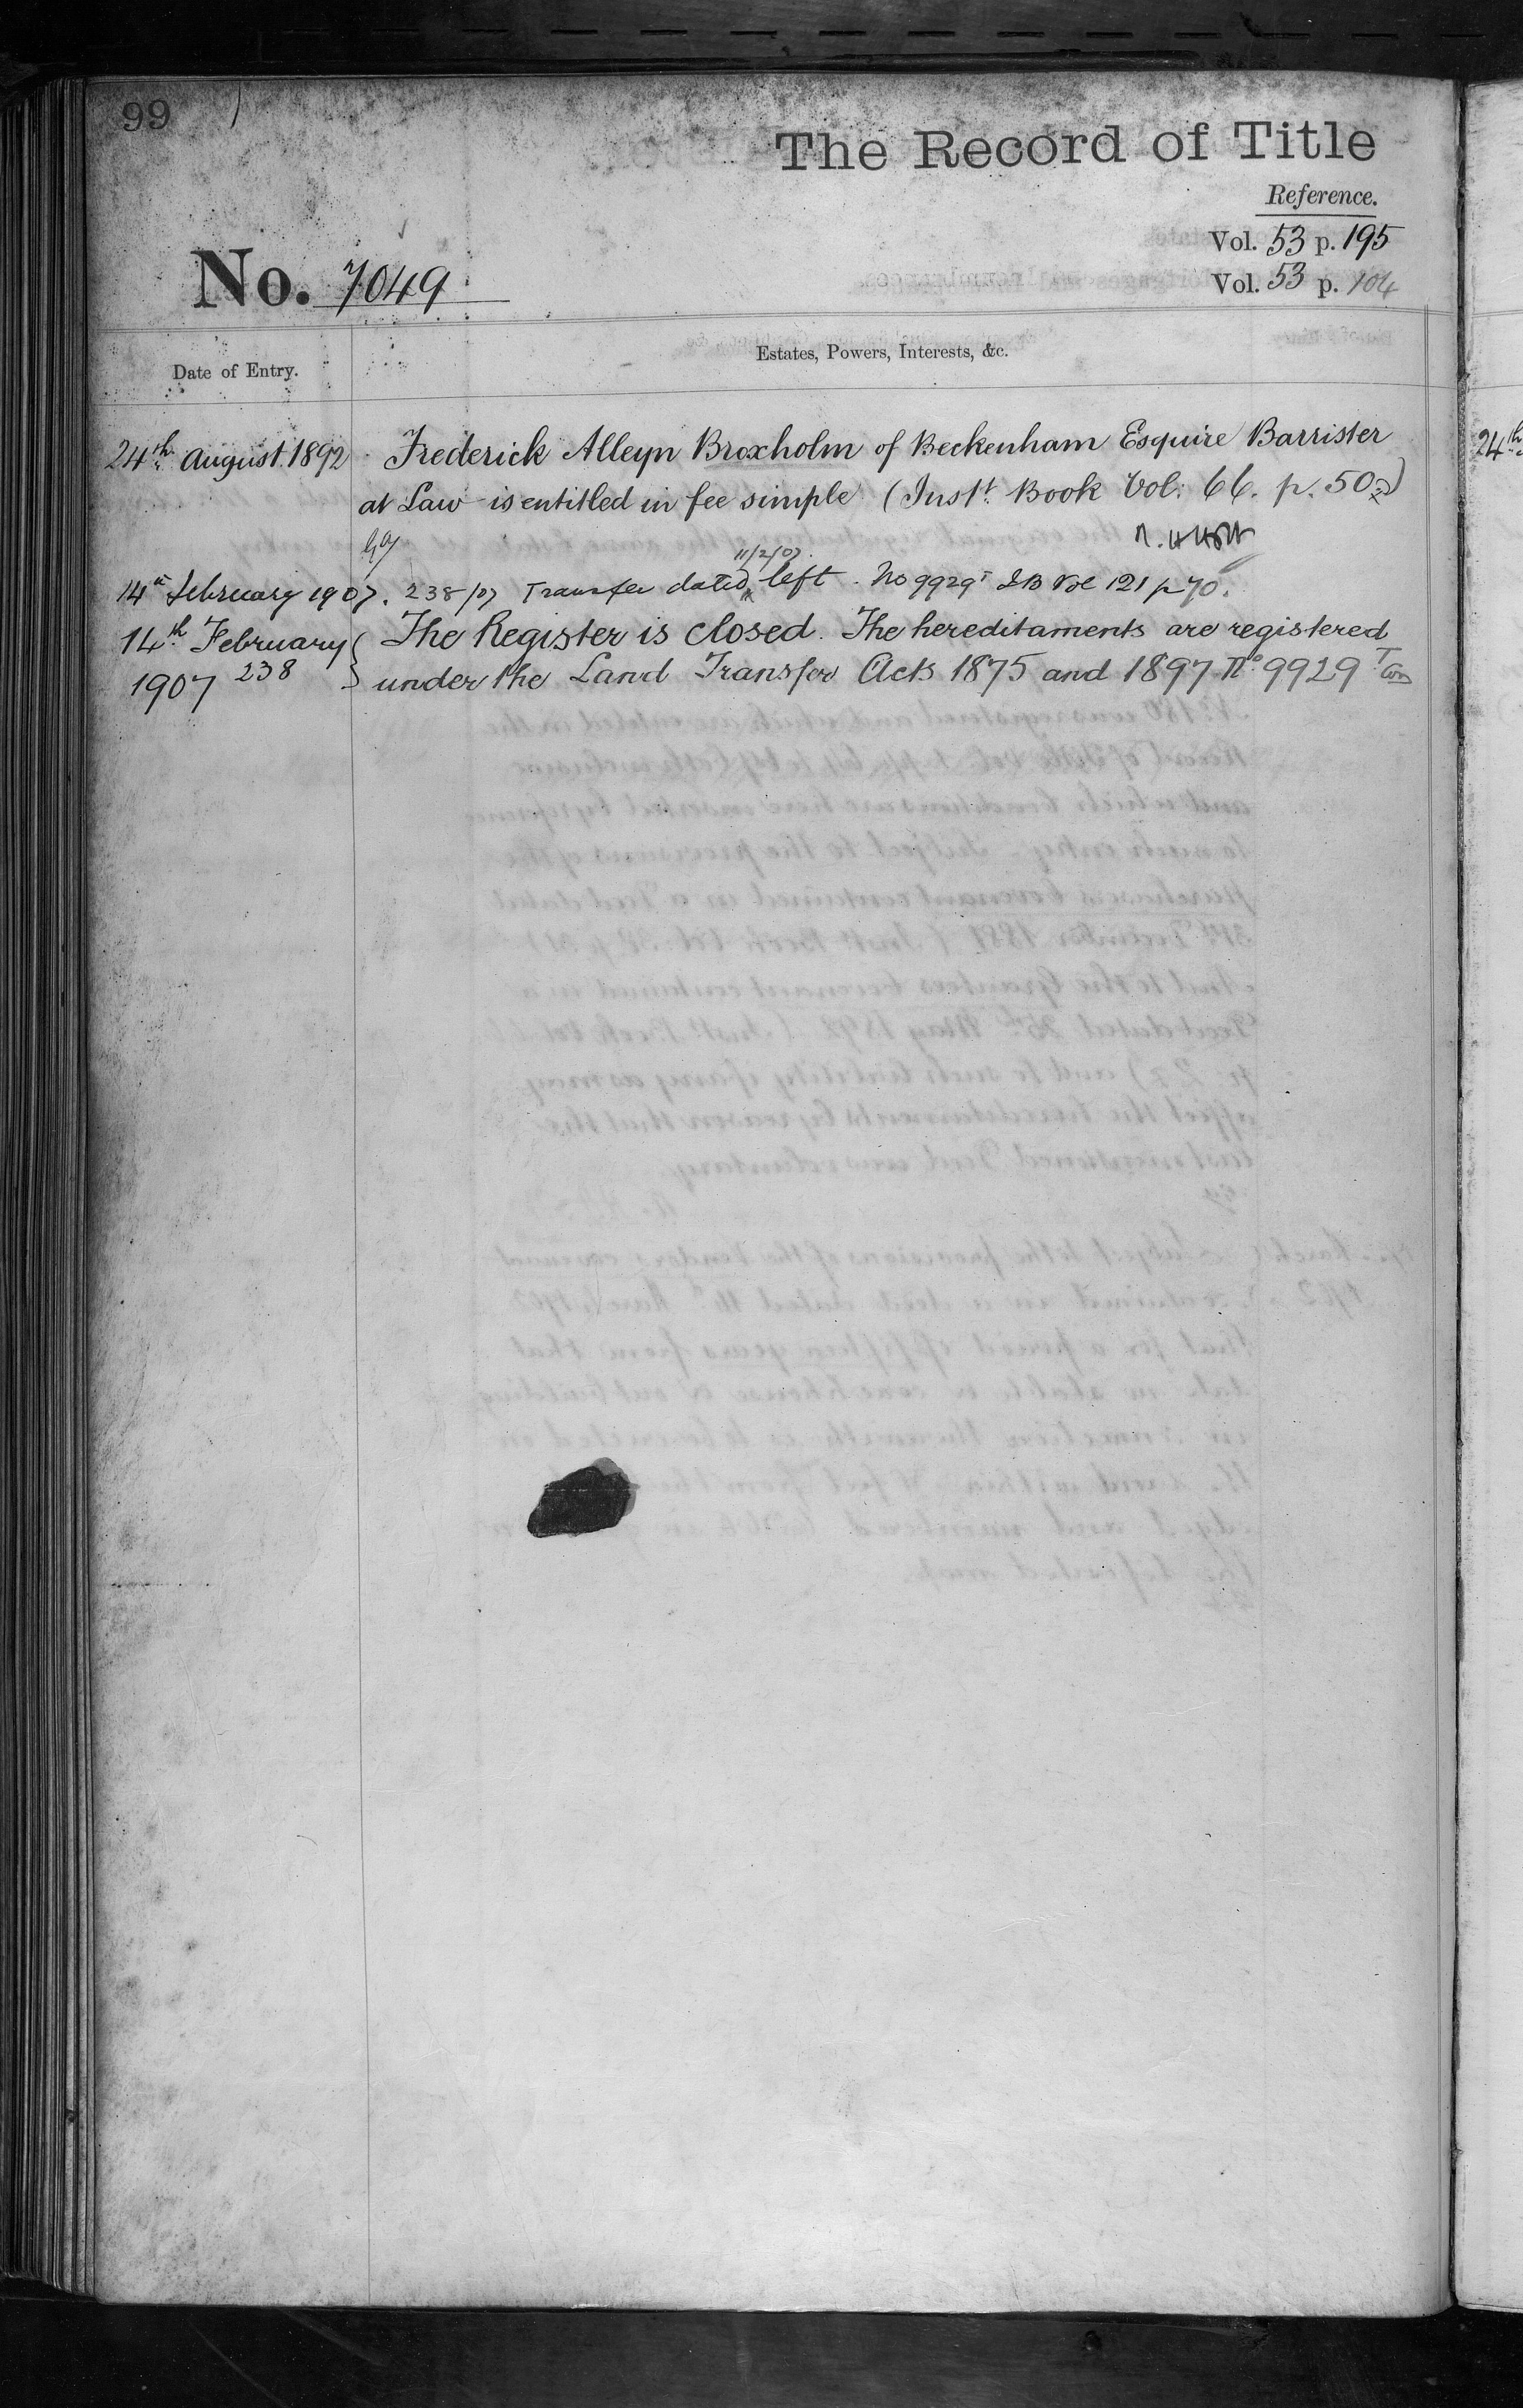 99
The Record of Title
Reference.
Vol. 53 p. 195
Vol. 53 p. 104
No. 7049
Date of Entry.
Estates, Powers, Interests, &c.
24th August 1892 Frederick Alleyn Broxholm of Beckenham Esquire Barrister
at Law is entitled in fee simple (Instt. Book Vol: 66. p. 50
11/2/07.
14th February 1907. 238/07 Transfer dated left. No 9929T IB Vol 121 p 70.
14th February The Register is closed. The hereditaments are registered
1907 238 under the Land Transfer Acts 1875 and 1897 No 9929 T
24th